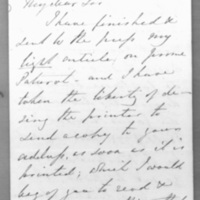 My dear Sir
I have finished &
sent to the press my
article, on Jerome
Paturot - and I have
taken the liberty of de-
siring the printer to
send a copy to your
address, as soon as it is
printed; which I would
beg of you to read &